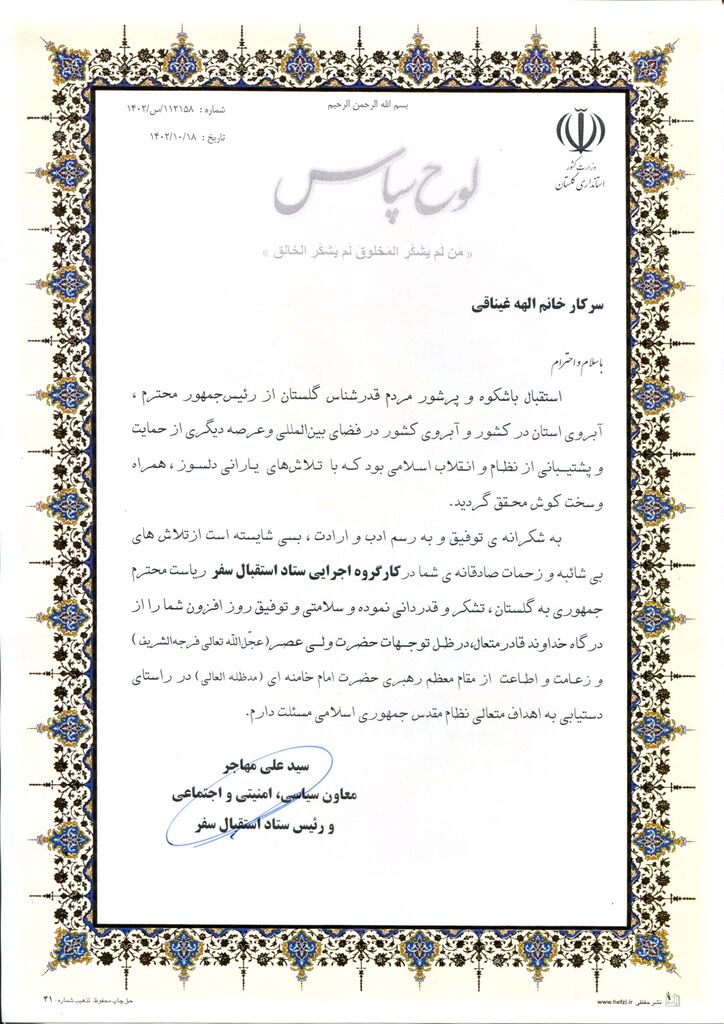 بسم الله الرحمن الرحیم
شماره : ۱۱۲۱۵۸/س/۱۴۰۲
تاریخ : ۱۴۰۲/۱۰/۱۸
وزارت کشور
استانداری گلستان
لوح سپاس
« من لم یشکُر المَخلوق لم یَشکُر الخالق »
سرکار خانم الهه غیناقی
باسلام و احترام
استقبال باشکوه و پرشور مردم قدرشناس گلستان از رئیس‌جمهور محترم ،
آبروی استان در کشور و آبروی کشور در فضای بین‌المللی وعرصه دیگری از حمایت
و پشتیبانی از نظام و انقلاب اسلامی بود که با تلاش‌های یارانی دلسوز ، همراه
وسخت کوش محقق گردید.
به شکرانه ی توفیق و به رسم ادب و ارادت ، بسی شایسته است ازتلاش های
بی شائبه و زحمات صادقانه ی شما درکارگروه اجرایی ستاد استقبال سفر ریاست محترم
جمهوری به گلستان ، تشکر و قدردانی نموده و سلامتی و توفیق روز افزون شما را از
درگاه خداوند قادرمتعال،درظل توجهات حضرت ولی عصر(عجّل‌اللّه تعالی فرجه‌الشریف )
و زعامت و اطاعت از مقام معظم رهبری حضرت امام خامنه ای (مدظله العالی) در راستای
دستیابی به اهداف متعالی نظام مقدس جمهوری اسلامی مسئلت دارم.
سید علی مهاجر
معاون سیاسی، امنیتی و اجتماعی
و رئیس ستاد استقبال سفر
نشر حفظی www.hefzi.ir
حق چاپ محفوظ. تذهیب شماره : ۳۱